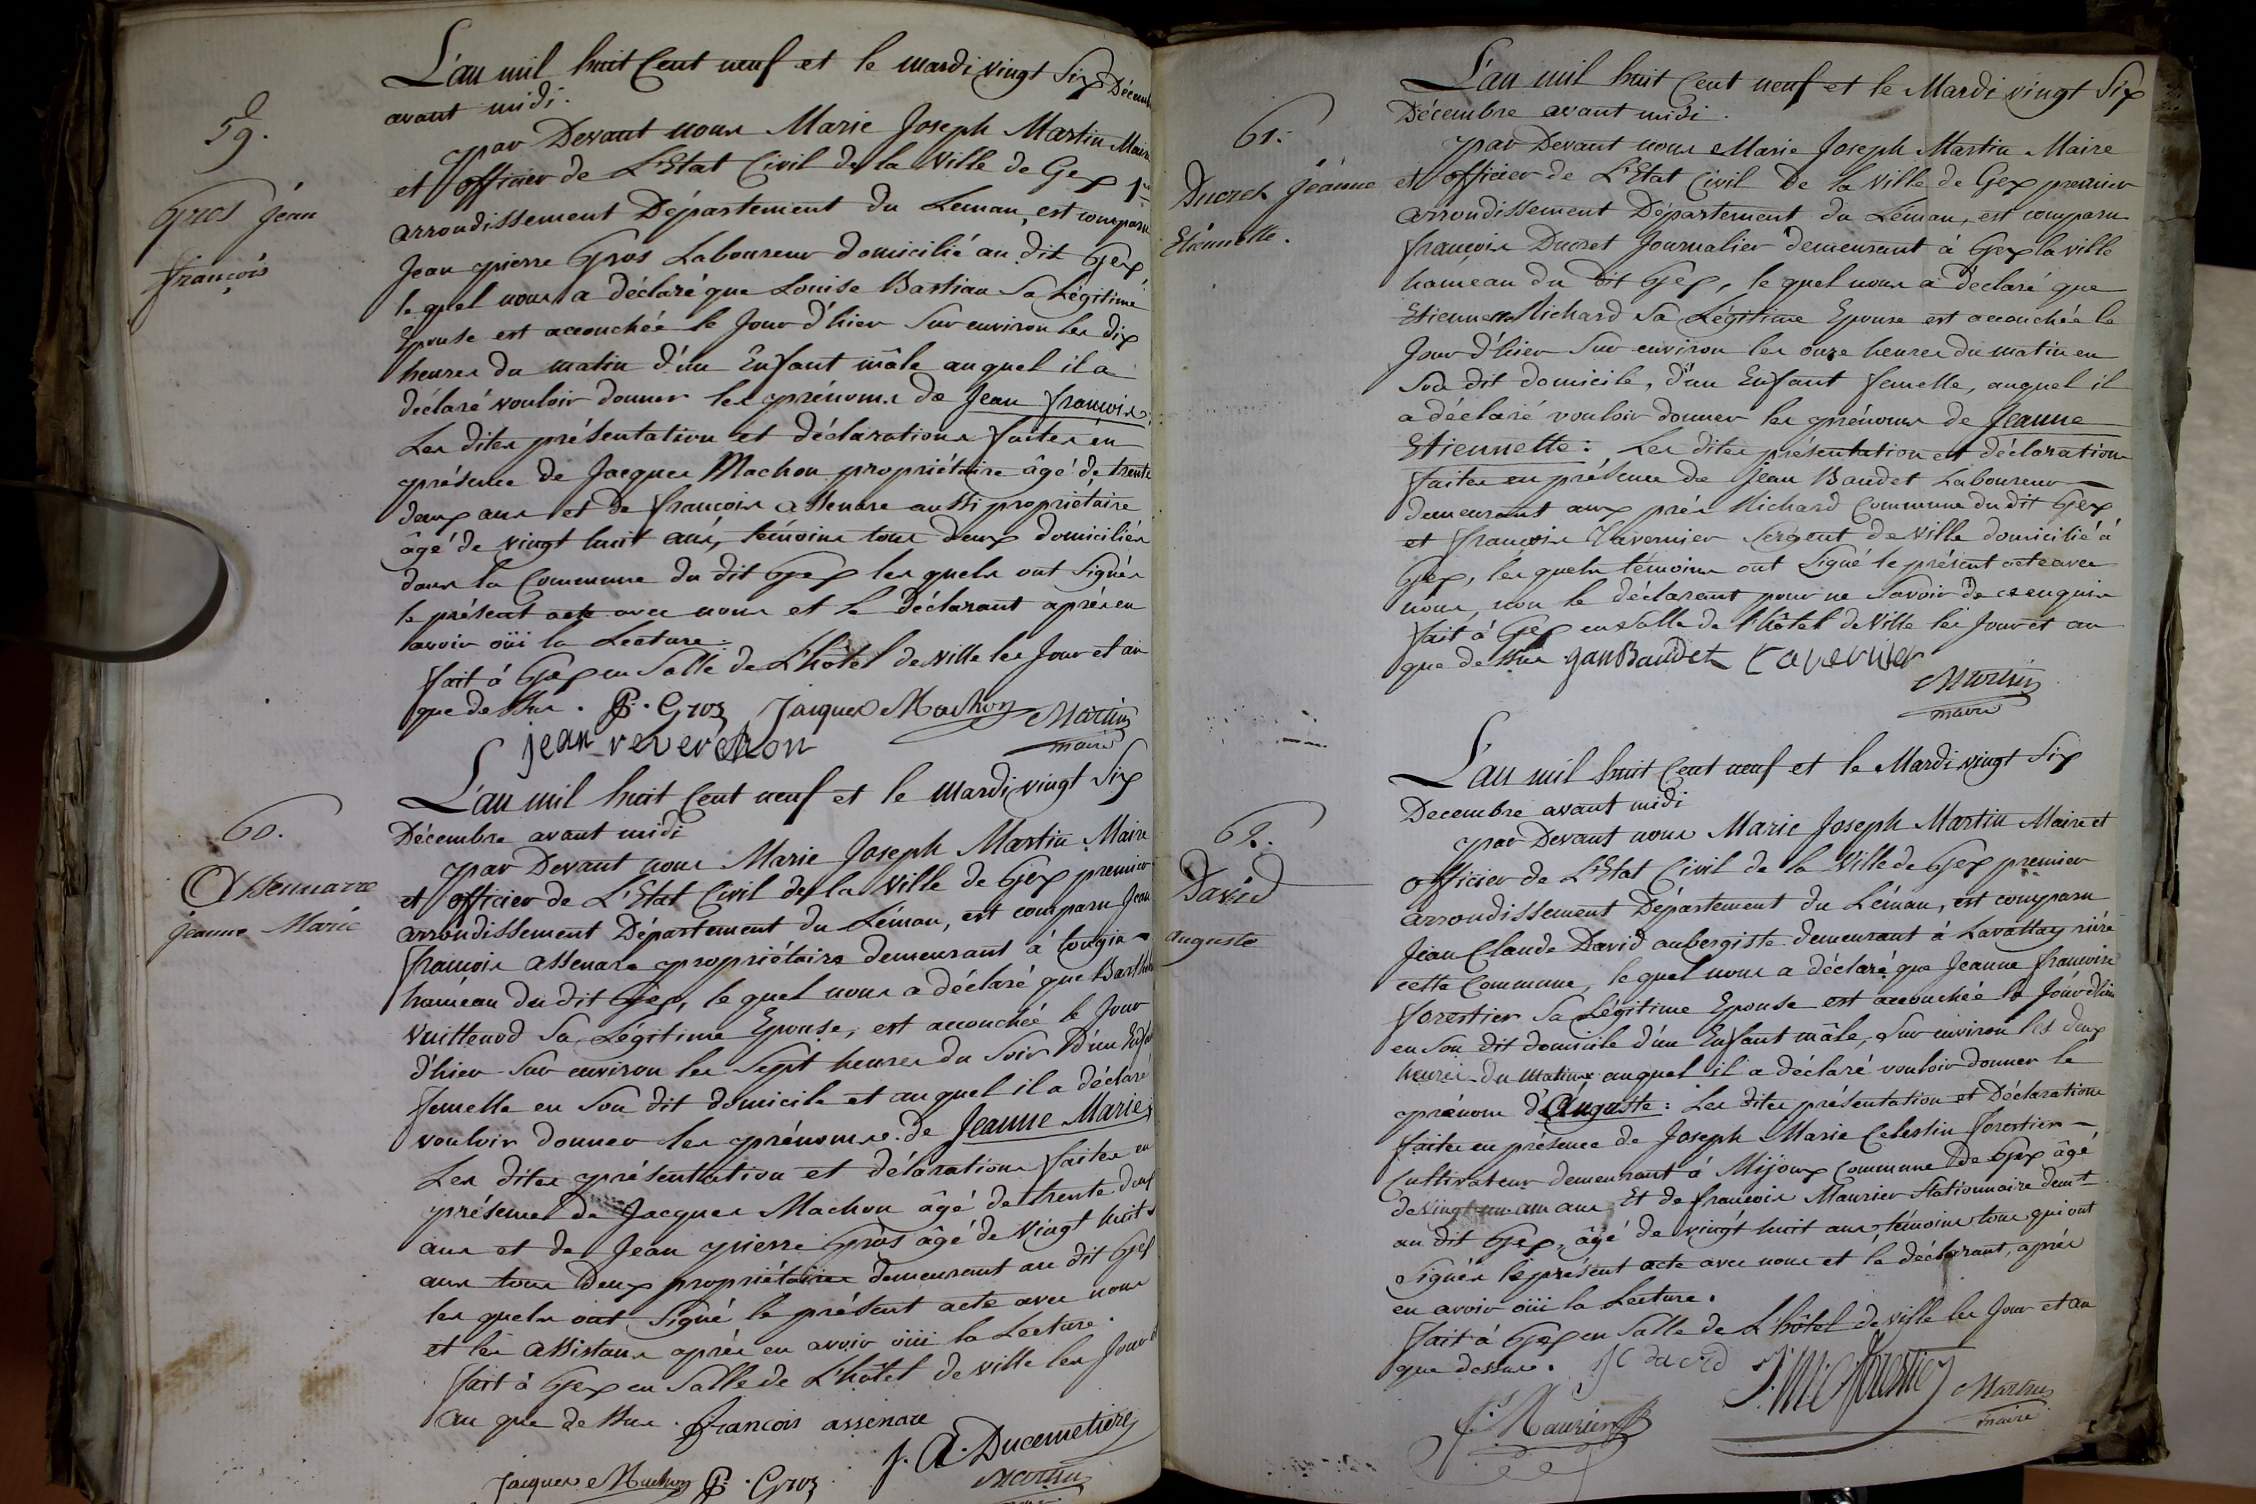 59.
Gros Jean
françois
L'an mil huit Cent neuf et le mardi vingt Six Décemb
avant midi.
par Devant nous Marie Joseph Martin Maire
et officier de L'Etat Civil de la Ville de Gex 1er
arrondissement Département du Leman, est comparu
Jean pierre Gros Laboureur domicilié au dit Gex,
le quel nous a déclaré que Louise Bastian Sa Légitime
Epouse est accouchée le Jour d'hier Sur environ les dix
heures du matin d'un Enfant mâle auquel il a
déclaré vouloir donner les prénoms de Jean françois.
Les dites présentation et déclarations faites en
présence de Jacques Machon propriétaire âgé de trente
deux ans et de françois Assenare aussi propriétaire
âgé de vingt huit ans, témoins tous deux domiciliés
dans la Commune du dit Gex les quels ont Signés
le présent acte avec nous et le Déclarant après en
avoir oüi la Lecture.
fait à Gex en Salle de L'hôtel de Ville les Jour et an
que dessus. JP. Gros Jacques Machon Martin
maire
jean reverchon
60.
Assennarre
jeanne Marie
L'an mil huit Cent neuf et le mardi vingt Six
Décembre avant midi
par Devant nous Marie Joseph Martin Maire
et officier de L'Etat Civil de la Ville de Gex premier
arrondissement Département du Léman, est comparu Jean
françois Assenare propriétaire demeurant à tougin
hameau du dit Gex, le quel nous a déclaré que
Vuittenod Sa Légitime Epouse, est accouchée le Jour
d'hier Sur environ les Sept heures du Soir D'un Enfa
femelle en Son dit domicile et auquel il a déclaré
vouloir donner les prénoms de Jeanne Marie;
Les dites présentation et déclarations faites en
présence de Jacques Machon âgé de trente deux
ans et de Jean pierre Gros âgé de Vingt huit
ans tous Deux propriétaires demeurant au dit Gex
les quels ont Signé le présent acte avec nous
et les Assistans après en avoir oüi la Lecture.
fait à Gex en Salle de L'hôtel de ville les Jour et
an que dessus. françois assenare
J. A. Ducemetiere
Jacques Machon JP. Gros Martin
61.
Ducret Jeanne
Etiennette.
L'an mil huit Cent neuf et le Mardi vingt Six
Décembre avant midi.
par Devant nous Marie Joseph Martin Maire
et officier de L'Etat Civil De la Ville de Gex premier
arrondissement Département du Léman, est comparu
françois Ducret Journalier demeurant à Gex la ville
hameau du dit Gex, le quel nous a déclaré que
Etiennette Richard Sa Légitime Epouse est accouchée le
Jour d'hier Sur environ les onze heures du matin en
Son dit domicile, d'un Enfant femelle, auquel il
a déclaré vouloir donner les prénoms de Jeanne
Etiennette: Les dites présentation et déclaration
faites en présence de Jean Baudet Laboureur
demeurant aux prés Richard Commune du dit Gex
et françois Tavernier Sergent de Ville domicilié à
Gex, les quels témoins ont Signé le présent acte avec
nous, non le déclarant pour ne Savoir de ce enquis
fait à Gex en Salle de l'hôtel de Ville les Jour et an
que dessus jan Baudet Tavernier
Martin
maire
62.
David
auguste
L'an mil huit Cent neuf et le Mardi vingt Six
Decembre avant midi
par Devant nous Marie Joseph Martin Maire et
officier de L'Etat Civil de la Ville de Gex premier
arrondissement Département du Léman, est comparu
Jean Claude David aubergiste demeurant à Lavattay rière
cette Commune, le quel nous a déclaré que Jeanne françoise
forestier Sa Légitime Epouse est accouchée le Jour d'hier
en Son dit domicile d'un Enfant mâle, Sur environ les deux
heures du matin auquel il a déclaré vouloir donner le
prénom d'Auguste: Les dites présentation et Déclarations
faites en présence de Joseph Marie Celestin forestier
Cultivateur demeurant à Mijoux Commune de Gex âgé
de vingt un ans Et de françois Maurier Stationnaire demt
au dit Gex, âgé de vingt huit ans, témoins tous qui ont
Signés le présent acte avec nous et le déclarant, après
en avoir oüi la Lecture.
fait à Gex en Salle de L'hôtel de ville les Jour et an
que dessus. JC david J.M.C forestier Martin
maire
fs. Maurier